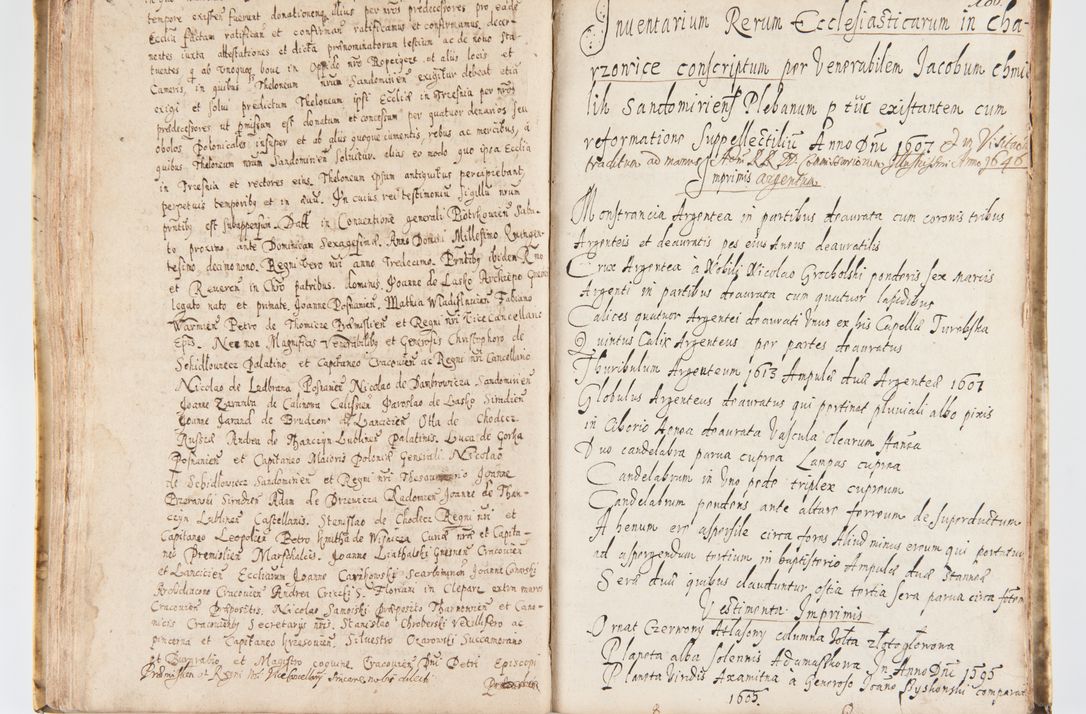 tempore existen fuerunt donationem illius per nros predecessores pro eade
Ecclia factam ratifican et confirman ratificamus et confirmamus, decer-
nentes iuxta attestationes et dicta prænominatorum testium ac de novo sta-
tuentes q ab unoquoq bove in Oppido nro et aliis locis et
Cameris, in quibus Theloneum nrum Sandomirien exigitur debeat etiã
exigi et solui predictum Theloneum ipsi Ecclie in Trzesnia per nros
predecessores ut præmissum est donatum et concessum per quatuor denarios seu
obolos Polonicales insuper et ab aliis quoque iumentis, rebus ac mercibus, a
quibus Theloneum nrum Sandomirien soluitur alias eo modo quo ipsa Ecclia
in Trzesnia et rectores eius Theloneum ipsum antiquitus percipiebant,
perpetuis temporibs et in ævu. In cuius rei testimoniu Sigillu nrum
pñtibs est subappensum. Datt in Conventione generali Piotrkovien Sabu-
to proximo ante Dominicam Sexagesimæ. Anno Domini Millesimo Quingen-
tesimo decimo nono. Regni vero nri anno Tredecimo. Pñtibs ibidem Rmo
et Reveren in Chro patribus. dominis, Joanne de Lasko Archiepo Gnesnen
legato nato et primate, Joanne Posnanien, Mathia Wladislavien Fabiano
Warmien Petro de Thomicze Præmislien et Regni nri Vicecancellario
Epis. Nec non Magnificis Venerabilibs et Generosis Christophoro de
Schidlowiecz Palatino et Capitaneo Cracovien ac Regni nri Cancellario
Nicolao de Lubrana Posnanien Nicolao de Dambrowicza Sandomirien
Joanne Zaremba de Calinova Calissien Jaroslao de Lasko Siradien
Joanne Jarand de Brudzow Lancicien Otta de Chodecz
Russiæ Andrea de Thanczyn Lublinen Palatinis. Luca de Gorka
Posnanien et Capitaneo Maioris Poloniæ Generali Nicolao
de Schidlowiecz Sandomirien et Regni nri Thesaurario Joanne
Siradien Adam de Drzewicza Radomien Joanne de Than-
czyn Lublinen Castellanis. Stanislao de Chodecz Regni nri et
Capitaneo Leopolien Petro Kmitha de Wisnicza Curiæ nræ et Capita-
neo Premislien Marschalcis. Joanne Linthalski Gnesnen Cracovien
et Lancicien Ecclarum Joanne Carnkowski Scarbimirien Joanne Conarski
Archidiacono Cracovien Andrea Criczki S. Floriani in Clepare extra muros
Cracovien Præpositis, Nicolao Præposito Tharnowien et Cano-
nicis Cracovienibs Secretariis nris. Stanislao Chroberski Vexillifero ac
pincerna et Capitaneo Silvestro Ozarowski Succamerario
et Burgrabio et Magistro coquine Cracovien Dni Petri Episcopi
Præmislien et Regni nri Vicecancellarij sincere nobis dilecti
Inventarium Rerum Ecclesiasticarum in Cha-
rzowice conscriptum per Venerabilem Jacobum Chmie
lik Sandomiriens Plebanum p tuc existantem cum
reformatione suppellectiliu Anno Dni 1607 In Visitaõe
traditum ad manus Adm RR DD Commissariorum Illustrissimi Anno 1646
Imprimis Argentum.
Monstrancia Argentea in partibus deaurata cum coronis tribus
Argenteis et deauratis pes eius Aneus deauratus
Crux Argentea à Nobili Nicolao Grocholski ponderis sex marcis
Argenti in partibus deaurata cum quatuor lapidibus
Calices quatuor Argentei deaurati Unus ex his Capellæ Turobska
Quintus Calix Argenteus per partes deauratus
Thuribulum Argenteum 1613 Ampulæ duæ Argenteæ 1607
Globulus Argenteus deauratus qui pertinet pluuiali albo pixis
in Ciborio Aenea deaurata Vascula olearum stanea
Duo candelabra parua cuprea Lampas cuprea
Candelabrum in Uno pede triplex cupreum
Candelabrum pendens ante altare ferreum de superductum
Ahenum ere aspersile circa fores Aliud minus ereum qui portatur
ad aspergendum tertium in baptisterio Ampulæ duæ stanneæ
Seræ duæ quibus clauduntur ostia tertia sera parua circa fontem
Vestimenta Imprimis
Ornat Czerwony Atlasowy columna Zołta złotogłowowa
Planeta alba solennis Adamaschkowa In Anno Dni 1595
Planeta Viridis Axamitna a Generoso Joane Ryshowski comparata
1605.